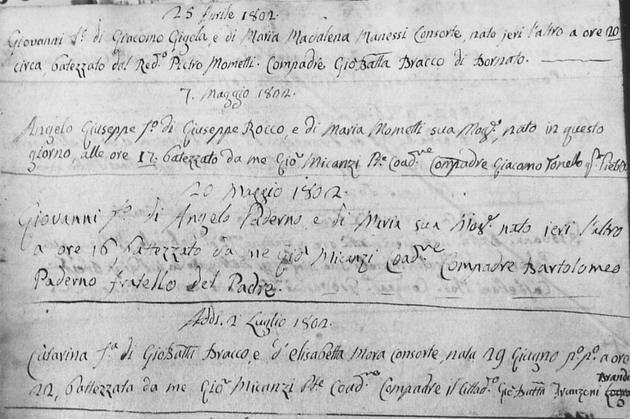 25 Aprile 1802.
Giovanni f.o di Giacomo Gigola e di Maria Madalena Manessi Consorte, nato jeri l'altro a ore 20
circa batezzato dal Red.o Pietro Mometti. Compadre GioBatta Bracco di Bornato.
7. Maggio 1802.
Angelo Giuseppe f.o di Giuseppe Rocco, e di Maria Mometti sua Mog.e, nato in questo
giorno, alle ore 17 batezzato da me Gio. Micanzi Coad.re Compadre Giacomo Tonelo
20 Maggio 1802.
Giovanni f.o di Angelo Paderno, e di Maria sua Mog.e nato jeri l'altro
a ore 16, battezzato da me Gio. Micanzi Coad.re Compadre Bartolomeo
Paderno fratello del Padre.
Addi. 2 Luglio 1802.
Catarina f.a di GioBatta Bracco, e d'elisabetta Mora consorte, nata 29 Giugno p.o p.o a ore
22, battezzata da me Gio. Micanzi Coad.re Compadre il Cittad.o Gio Batta Avanzoni